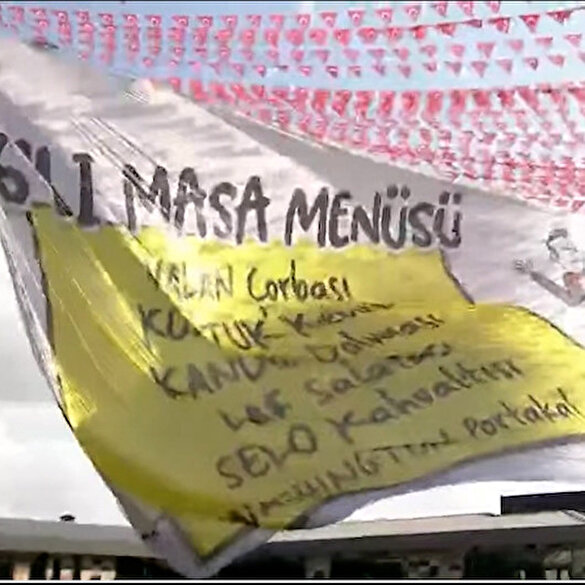 6'LI MASA MENÜSÜ
YALAN Çorbası
KOLTUK
KANDIL Dolması
LAF Salatası
SELO Kahvaltısı
WASHINGTON Portakal